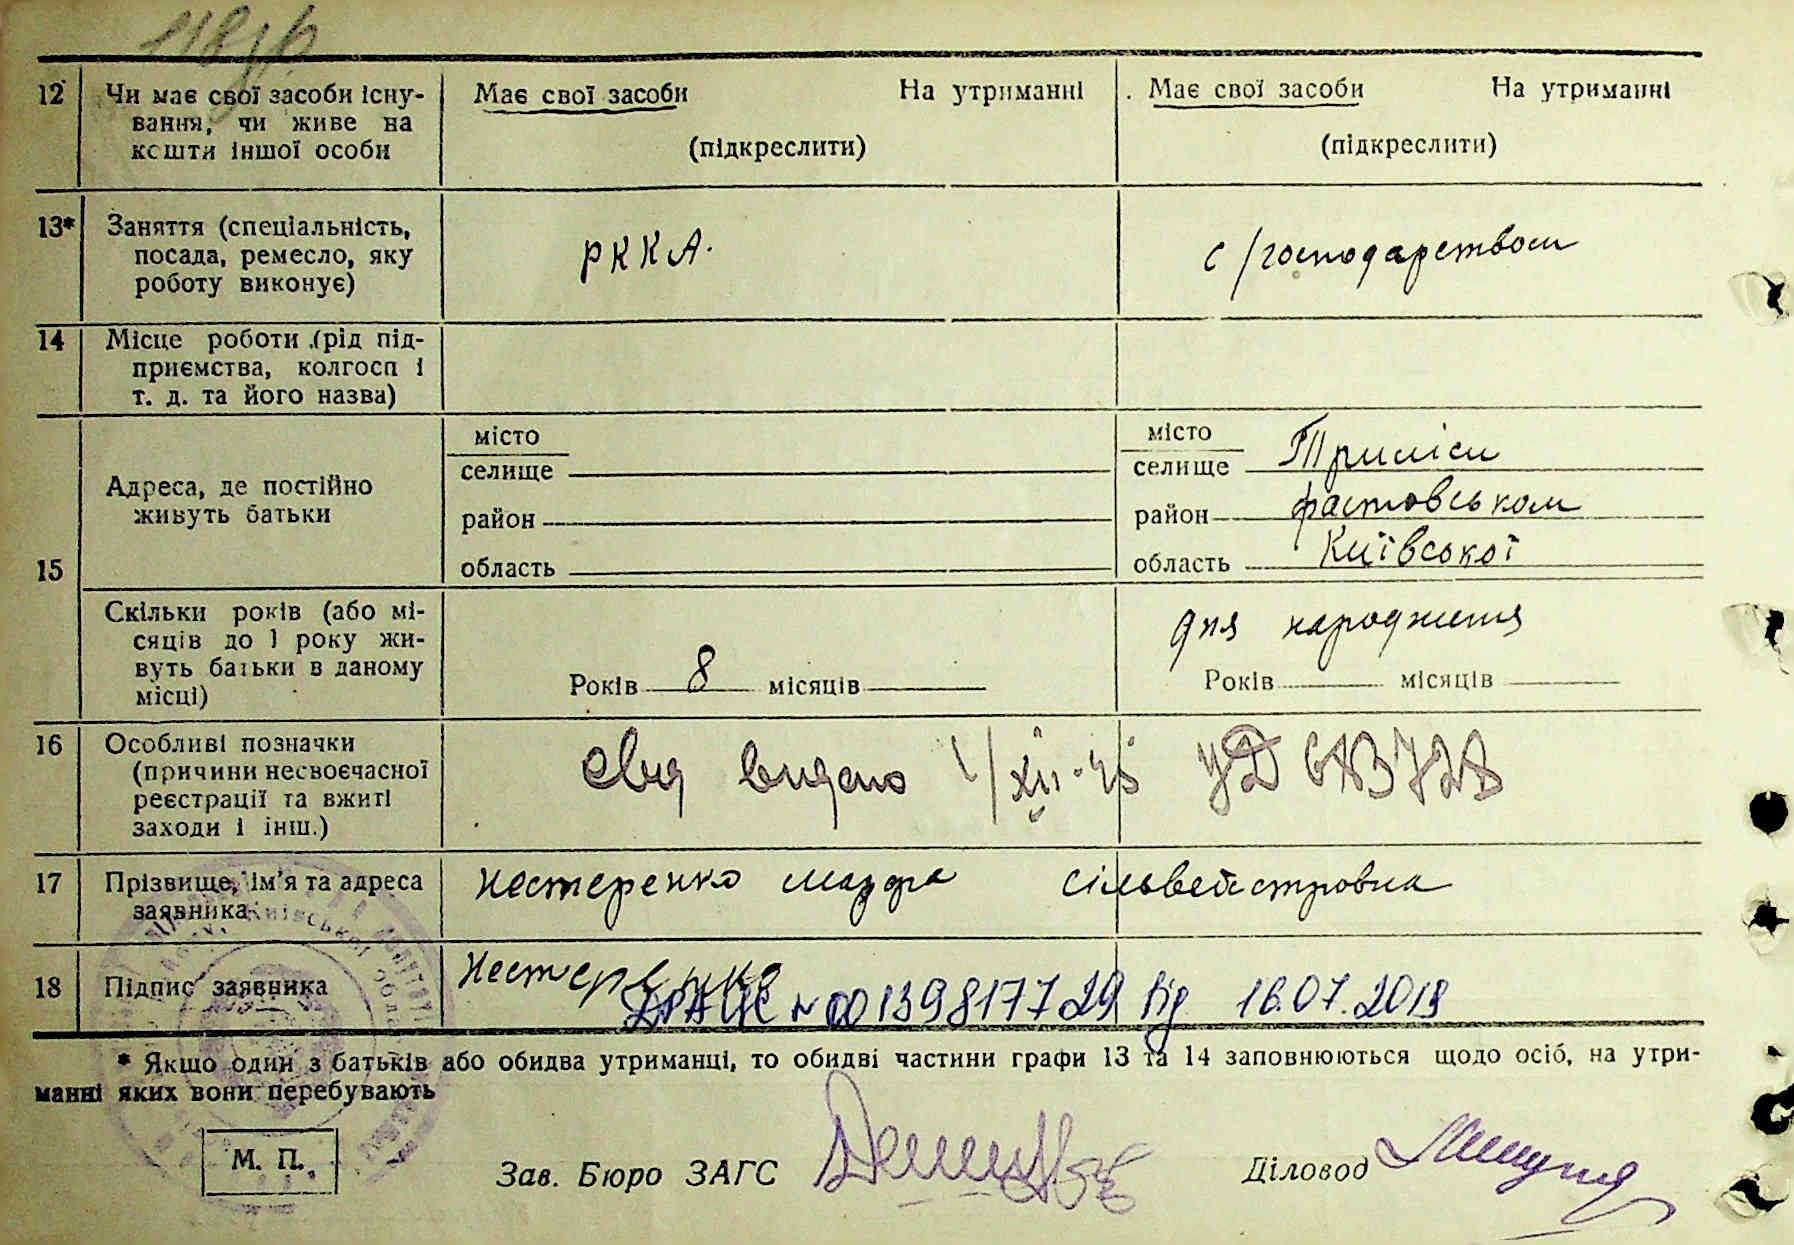 12 Чи має свої засоби існу-
вання, чи живе на
кошти іншої особи
Має свої засоби На утриманні
(підкреслити)
Має свої засоби На утриманні
(підкреслити)
13* Заняття (спеціальність,
посада, ремесло, яку
роботу виконує)
РККА.
с/господарством
14 Місце роботи (рід під-
приємства, колгосп і
т. д. та його назва)
15
Адреса, де постійно
живуть батьки
місто
селище
район
область
місто
селище Триліси
район фастовськом
область Київської
Скільки років (або мі-
сяців до 1 року жи-
вуть батьки в даному
місці)
Років 8 місяців
дня народження
Років місяців
16 Особливі позначки
(причини несвоєчасної
реєстрації та вжиті
заходи і інш.)
видано УД
17 Прізвище, ім'я та адреса
заявника
Нестеренко Мазфа Сільвейстровна
18 Підпис заявника
Нестеренко
ДРАЦС №00139817729 від 16.07.2018
* Якщо один з батьків або обидва утриманці, то обидві частини графи 13 та 14 заповнюються щодо осіб, на утри-
манні яких вони перебувають
М. П.
Зав. Бюро ЗАГС
Діловод